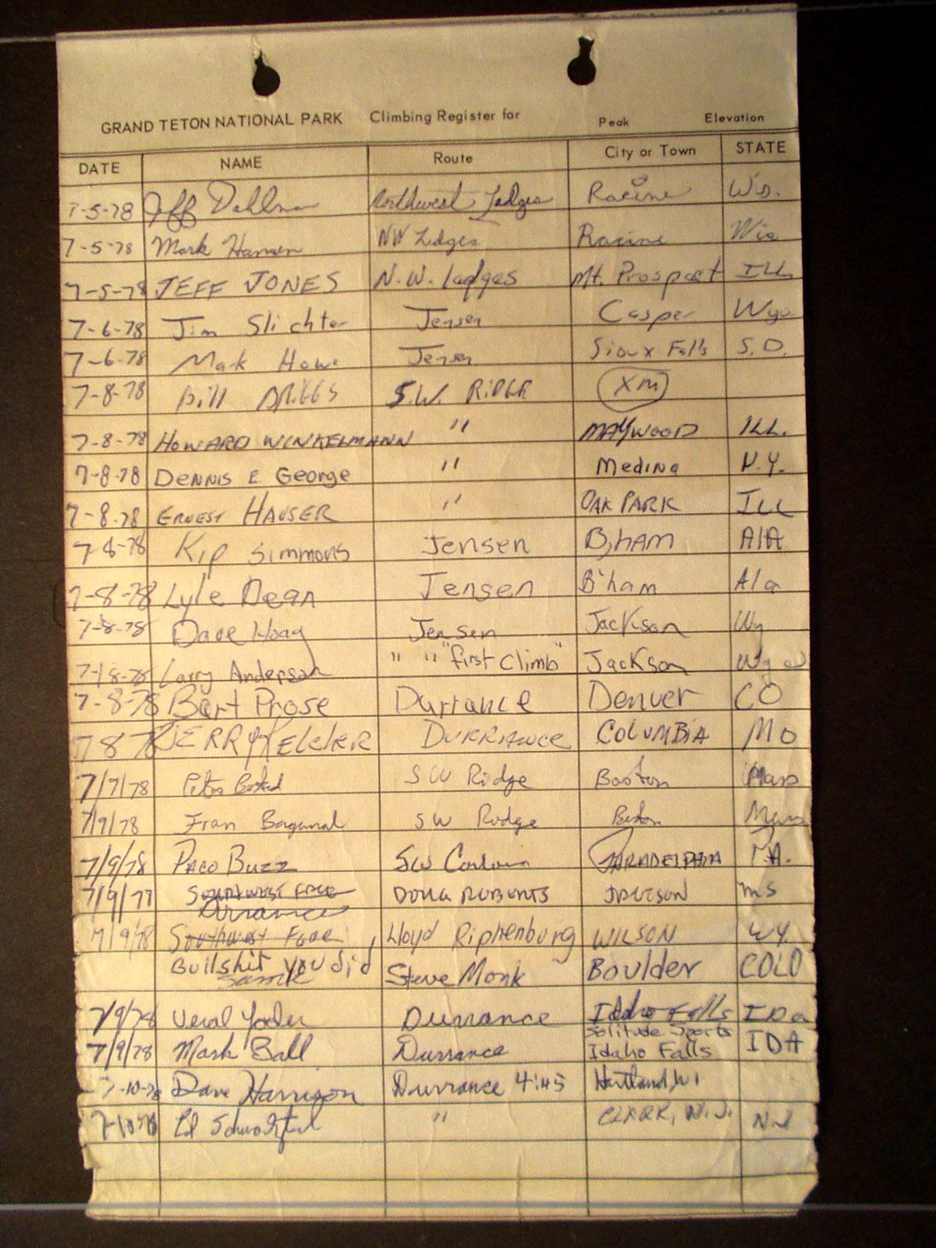 GRAND TETON NATIONAL PARK Climbing Register for Peak Elevation
DATE NAME Route City or Town STATE
7-5-78 Jeff Northwest Ledges Racine Wis.
7-5-78 Mark Hansen NW Ledges Racine Wis
7-5-78 JEFF JONES N.W. Ledges Mt. Prospect ILL
7-6-78 Jim Slichter Jensen Casper Wyo.
7-6-78 Mark Howe Jensen Sioux Falls S.D.
7-8-78 Bill BRIGGS S.W. RIDGE XM
7-8-78 HOWARD WINKELMANN " MAYWOOD ILL.
7-8-78 DENNIS E George " Medina N.Y.
7-8-78 ERNEST HAUSER " OAK PARK ILL
7-8-78 Kip Simmons Jensen B'ham AlA
7-8-78 Lyle Dean Jensen B'ham Ala
7-8-78 Dave Hoag Jensen Jackson Wy
7-18-78 Larry Anderson " " "first Climb" Jackson
7-8-78 Bart Prose Durrance Denver CO
7 8 78 JERRY KELLER DURRANCE COLUMBIA MO
7/7/78 Peter SW Ridge Boston Mass
7/9/78 Fran Bagenal SW Ridge Boston Mass
7/9/78 PACO BUZZ SW PA.
7/9/77 SOUTHWEST FACE DOUG ROBERTS ms
Durrance
7/9/78 Southwest Face Lloyd Riphenburg WILSON WY.
Bullshit you did Steve Monk Boulder COLO
same
7/9/78 Veral Yoder Durrance Idaho Falls IDa
Solitude Sports
7/9/78 Mark Ball Durrance Idaho Falls IDA
7-10-78 Dave Harrison Durrance 4:45 Hartland, WI
7-10-78 Ed " CLARK, N.J. NJ